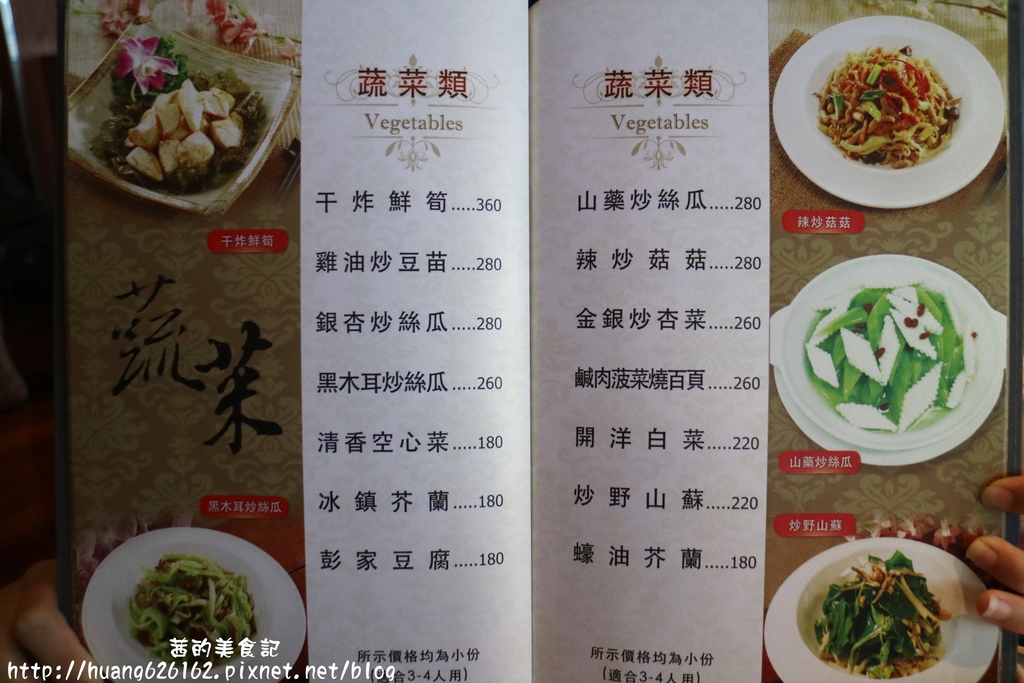 干炸鮮筍
蔬菜
黑木耳炒絲瓜
蔬菜類
Vegetables
干炸鮮筍.....360
雞油炒豆苗.....280
銀杏炒絲瓜.....280
黑木耳炒絲瓜.....260
清香空心菜.....180
冰鎮芥蘭.....180
彭家豆腐.....180
所示價格均為小份
(適合3-4人用)
蔬菜類
Vegetables
山藥炒絲瓜.....280
辣炒菇菇.....280
金銀炒杏菜.....260
鹹肉菠菜燒百頁.....260
開洋白菜.....220
炒野山蘇.....220
蠔油芥蘭.....180
所示價格均為小份
(適合3-4人用)
辣炒菇菇
山藥炒絲瓜
炒野山蘇
茜的美食記
http://huang626162.pixnet.net/blog